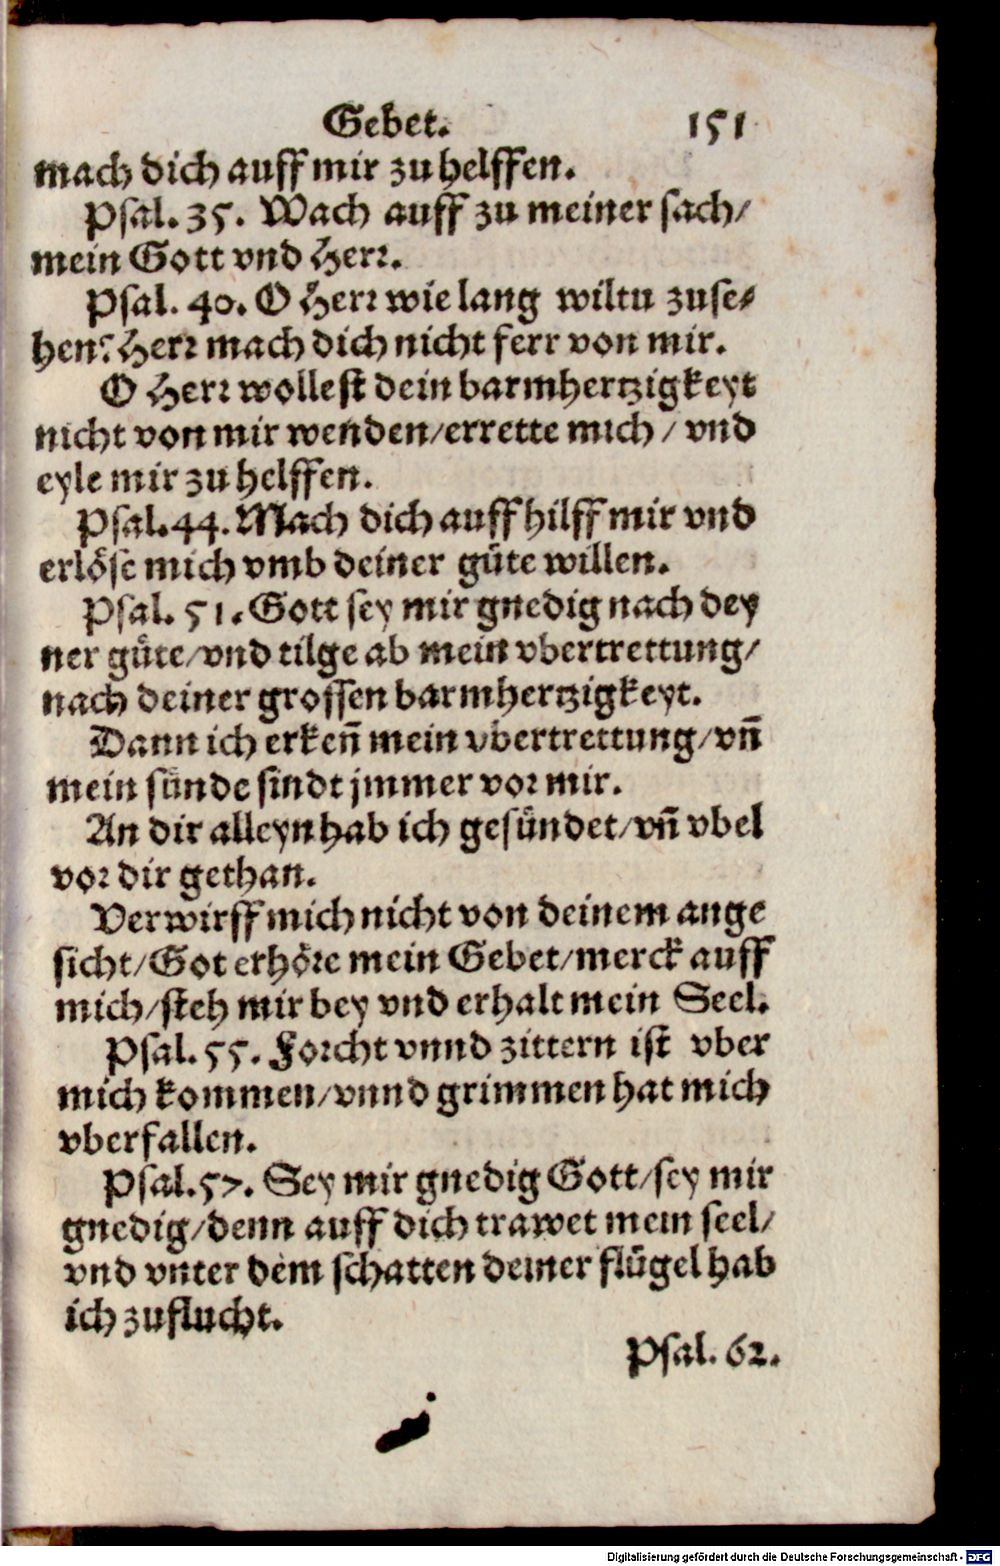 Gebet. 151
mach dich auff mir zu helffen.
Psal. 35. Wach auff zu meiner sach/
mein Gott vnd Herr.
Psal. 40. O Herr wie lang wiltu zuse⸗
hen? Herr mach dich nicht ferr von mir.
O Herr wollest dein barmhertzigkeyt
nicht von mir wenden/errette mich / vnd
eyle mir zu helffen.
Psal. 44. Mach dich auff hilff mir vnd
erlöse mich vmb deiner güte willen.
Psal. 51. Gott sey mir gnedig nach dey
ner güte/vnd tilge ab mein vbertrettung/
nach deiner grossen barmhertzigkeyt.
Dann ich erkeñ mein vbertrettung/vñ
mein sünde sindt jmmer vor mir.
An dir alleyn hab ich gesündet/vñ vbel
vor dir gethan.
Verwirff mich nicht von deinem ange
sicht/Got erhöre mein Gebet/merck auff
mich/steh mir bey vnd erhalt mein Seel.
Psal. 55. Forcht vnnd zittern ist vber
mich kommen/vnnd grimmen hat mich
vberfallen.
Psal. 57. Sey mir gnedig Gott/sey mir
gnedig/denn auff dich trawet mein seel/
vnd vnter dem schatten deiner flügel hab
ich zuflucht.
Psal. 62.
Digitalisierung gefördert durch die Deutsche Forschungsgemeinschaft - DFG